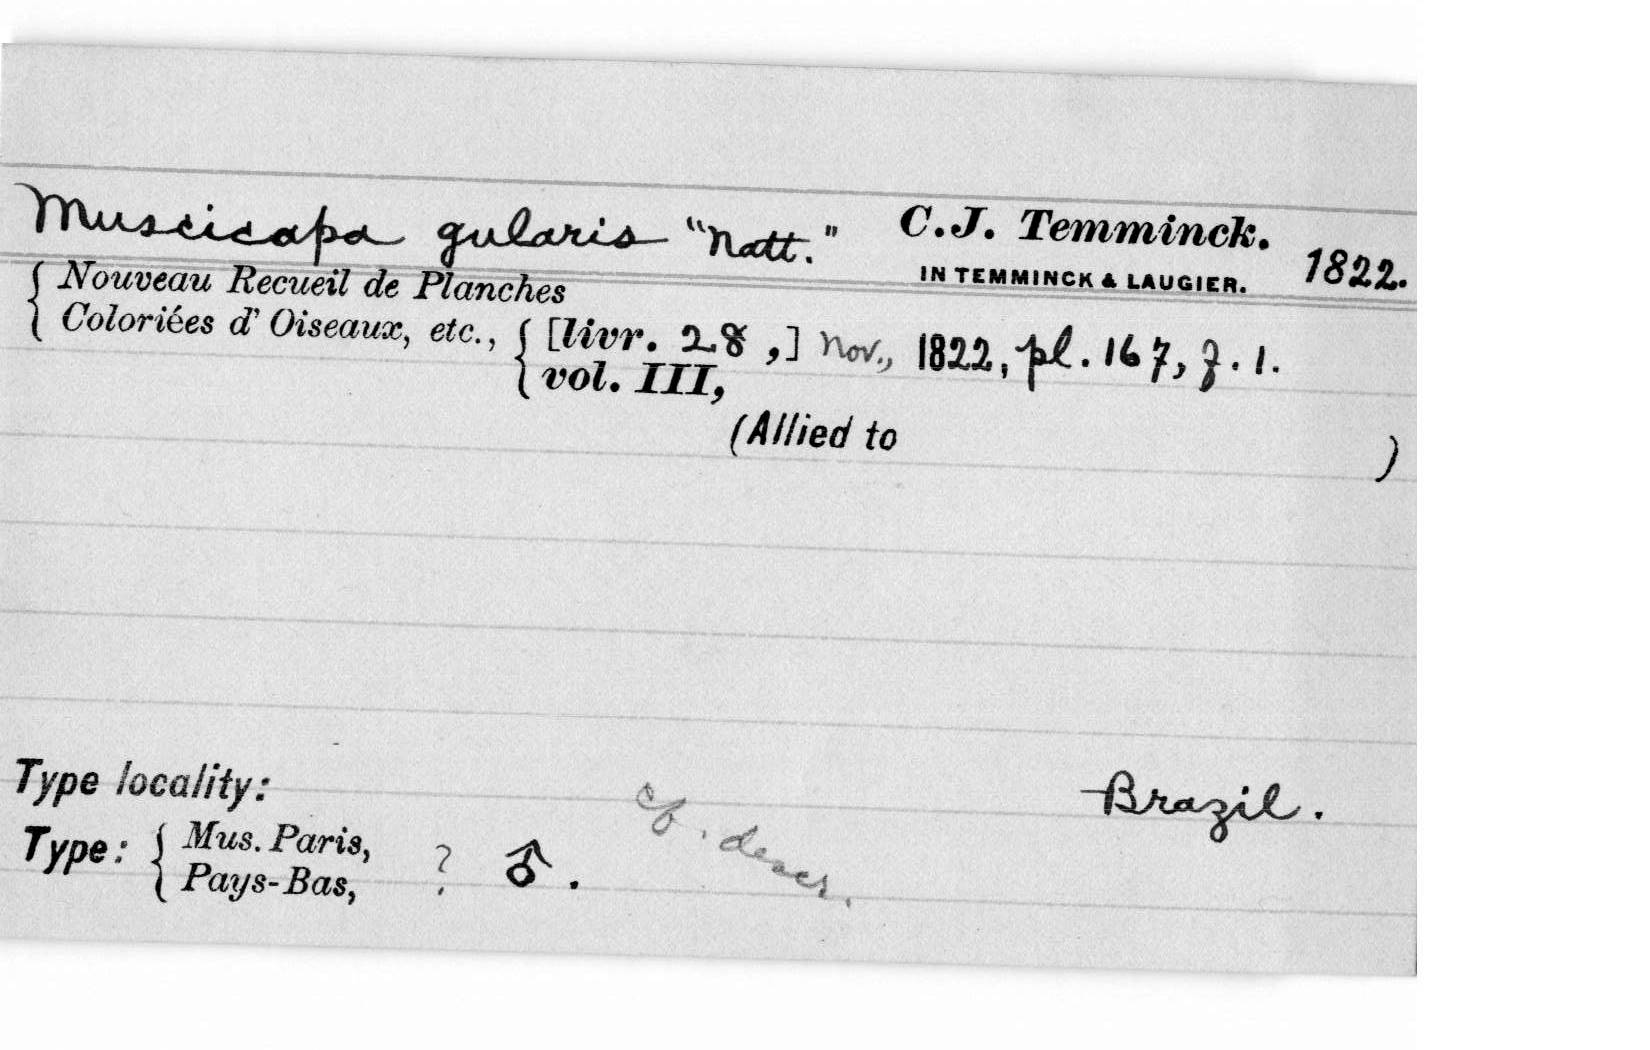 Muscicapa gularis "Natt." C.J. Temminck.
IN TEMMINCK & LAUGIER. 1822.
{ Nouveau Recueil de Planches
Coloriées d' Oiseaux, etc., { [livr. 28,] Nov., 1822, pl. 167, f. 1.
vol. III,
(Allied to )
Type locality: Brazil.
cf. descr.
Type: { Mus. Paris,
Pays-Bas, ? ♂.